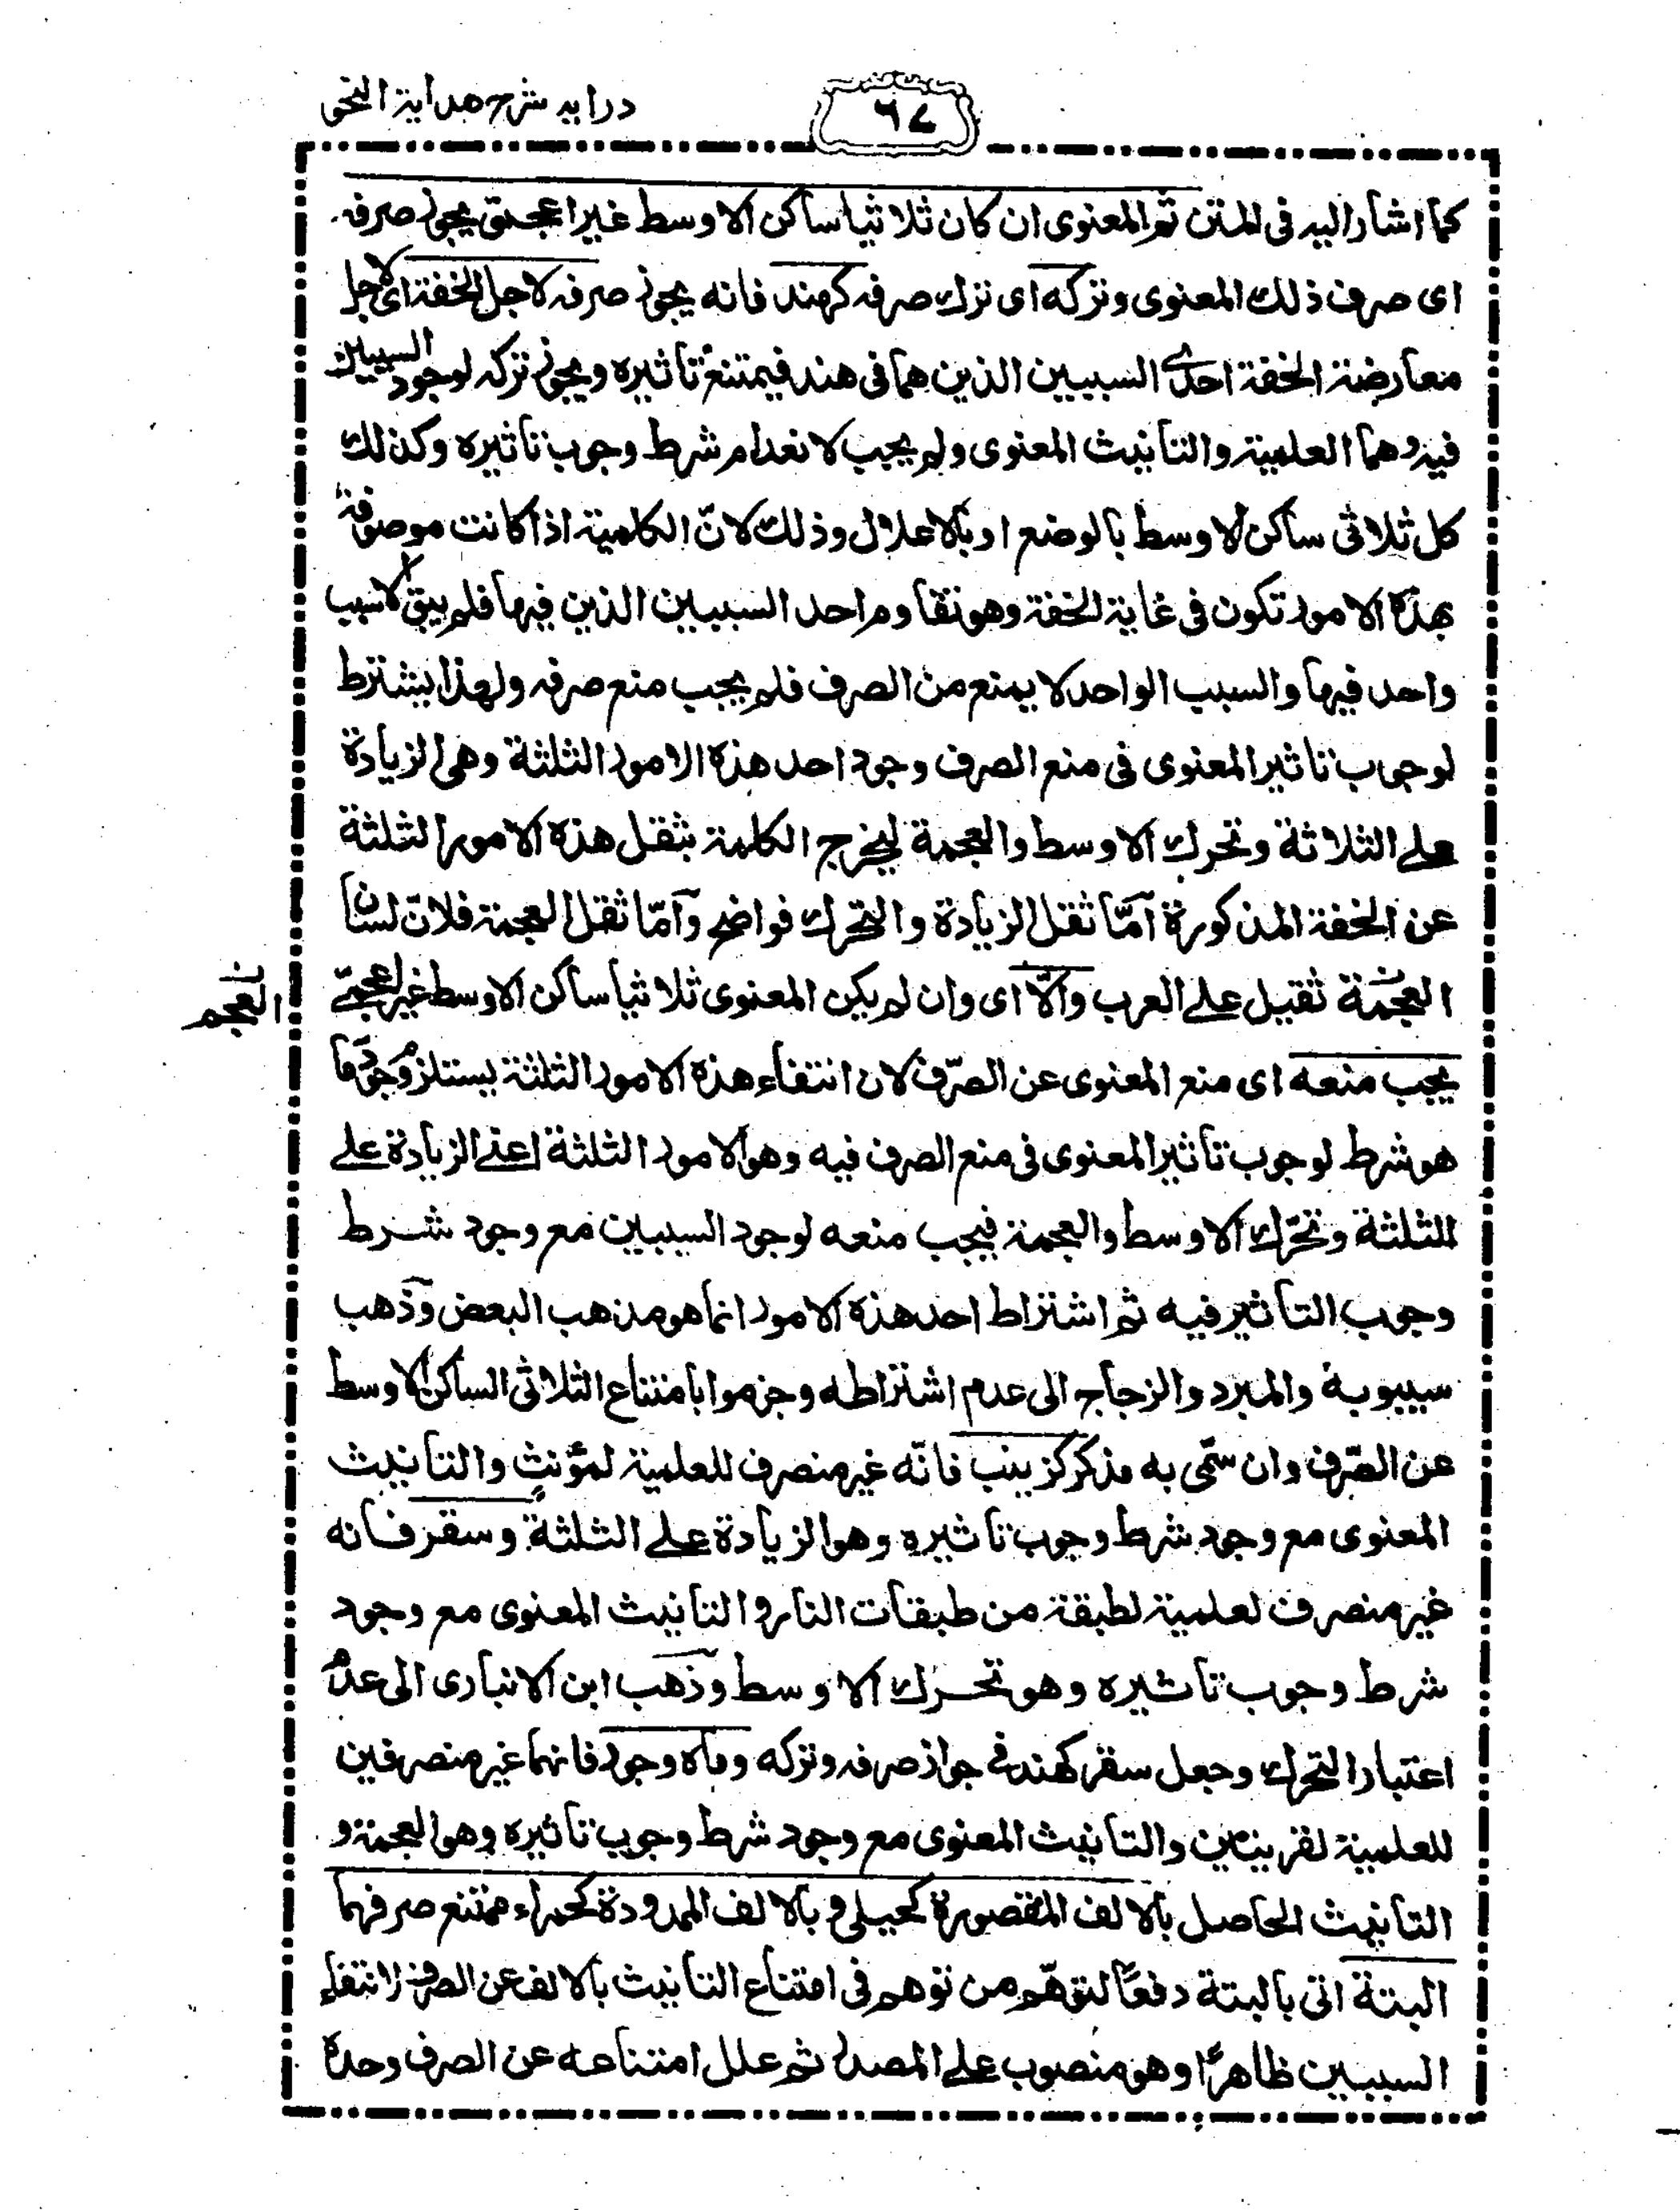 درایه شرح هدایة النحو
٦٧
كما اشار اليه فى المتن ثم المعنوى ان كان ثلاثيا ساكن الاوسط غير اعجمى يجوز صرفه
اى صرف ذلك المعنوى وتركه اى ترك صرفه كهند فانه يجوز صرفه لاجل الخفة اى لاجل
معارضة الخفة احدى السببين الذين هما فى هند فيمتنع تأثيره ويجوز تركه لوجود السببين
فيه وهما العلمية والتانيث المعنوى ولم يجب لانعدام شرط وجوب تاثيره وكذلك
كل ثلاثى ساكن الاوسط بالوضع او بالاعلال وذلك لانّ الكلمة اذا كانت موصوفة
بهذه الامور تكون فى غاية الخفة وهو تقاوم احد السببين الذين فيها فلم يبق الا سبب
واحد فيها والسبب الواحد لا يمنع من الصرف فلم يجب منع صرفه ولهذا يشترط
لوجوب تاثير المعنوى فى منع الصرف وجود احد هذه الامور الثلثة وهى الزيادة
على الثلاثة وتحرك الاوسط والعجمة ليخرج الكلمة بثقل هذه الامور الثلثة
عن الخفة المذكورة امّا ثقل الزيادة والتحرك فواضح وامّا ثقل العجمة فلانّ لسان
العجمة ثقيل على العرب والّا اى وان لم يكن المعنوى ثلاثيا ساكن الاوسط غير اعجمىّ
العجم
يجب منعه اى منع المعنوى عن الصّرف لان انتفاء هذه الامور الثلثة يستلزم وجود ما
هو شرط لوجوب تاثير المعنوى فى منع الصرف فيه وهو الامور الثلثة اعنى الزيادة على
الثلثة وتحرّك الاوسط والعجمة فيجب منعه لوجود السببين مع وجود شرط
وجوب التاثير فيه ثم اشتراط احد هذه الامور انما هو مذهب البعض وذهب
سيبويه والمبرد والزجاج الى عدم اشتراطه وجزموا بامتناع الثلاثى الساكن الاوسط
عن الصّرف وان سمّى به مذكر كزينب فانّه غير منصرف للعلمية لمؤنثٍ والتانيث
المعنوى مع وجود شرط وجوب تاثيره وهو الزيادة على الثلثة وسقر فانه
غير منصرف لعلمية لطبقة من طبقات النار والتانيث المعنوى مع وجود
شرط وجوب تاثيره وهو تحرك الاوسط وذهب ابن الانبارى الى عدم
اعتبار التحرك وجعل سقر كهند فى جواز صرفه وتركه وماه وجور فانهما غير منصرفين
للعلمية لقريتين والتانيث المعنوى مع وجود شرط وجوب تاثيره وهو العجمة و
التانيث الحاصل بالالف المقصورة كحبلى و بالالف الممدودة كحمراء ممتنع صرفهما
البتة اتى بالبتة دفعًا لتوهّم من توهم فى امتناع التانيث بالالف عن الصرف لانتفاء
السببين ظاهرًا وهو منصوب على المصدر ثم علل امتناعه عن الصرف وحده